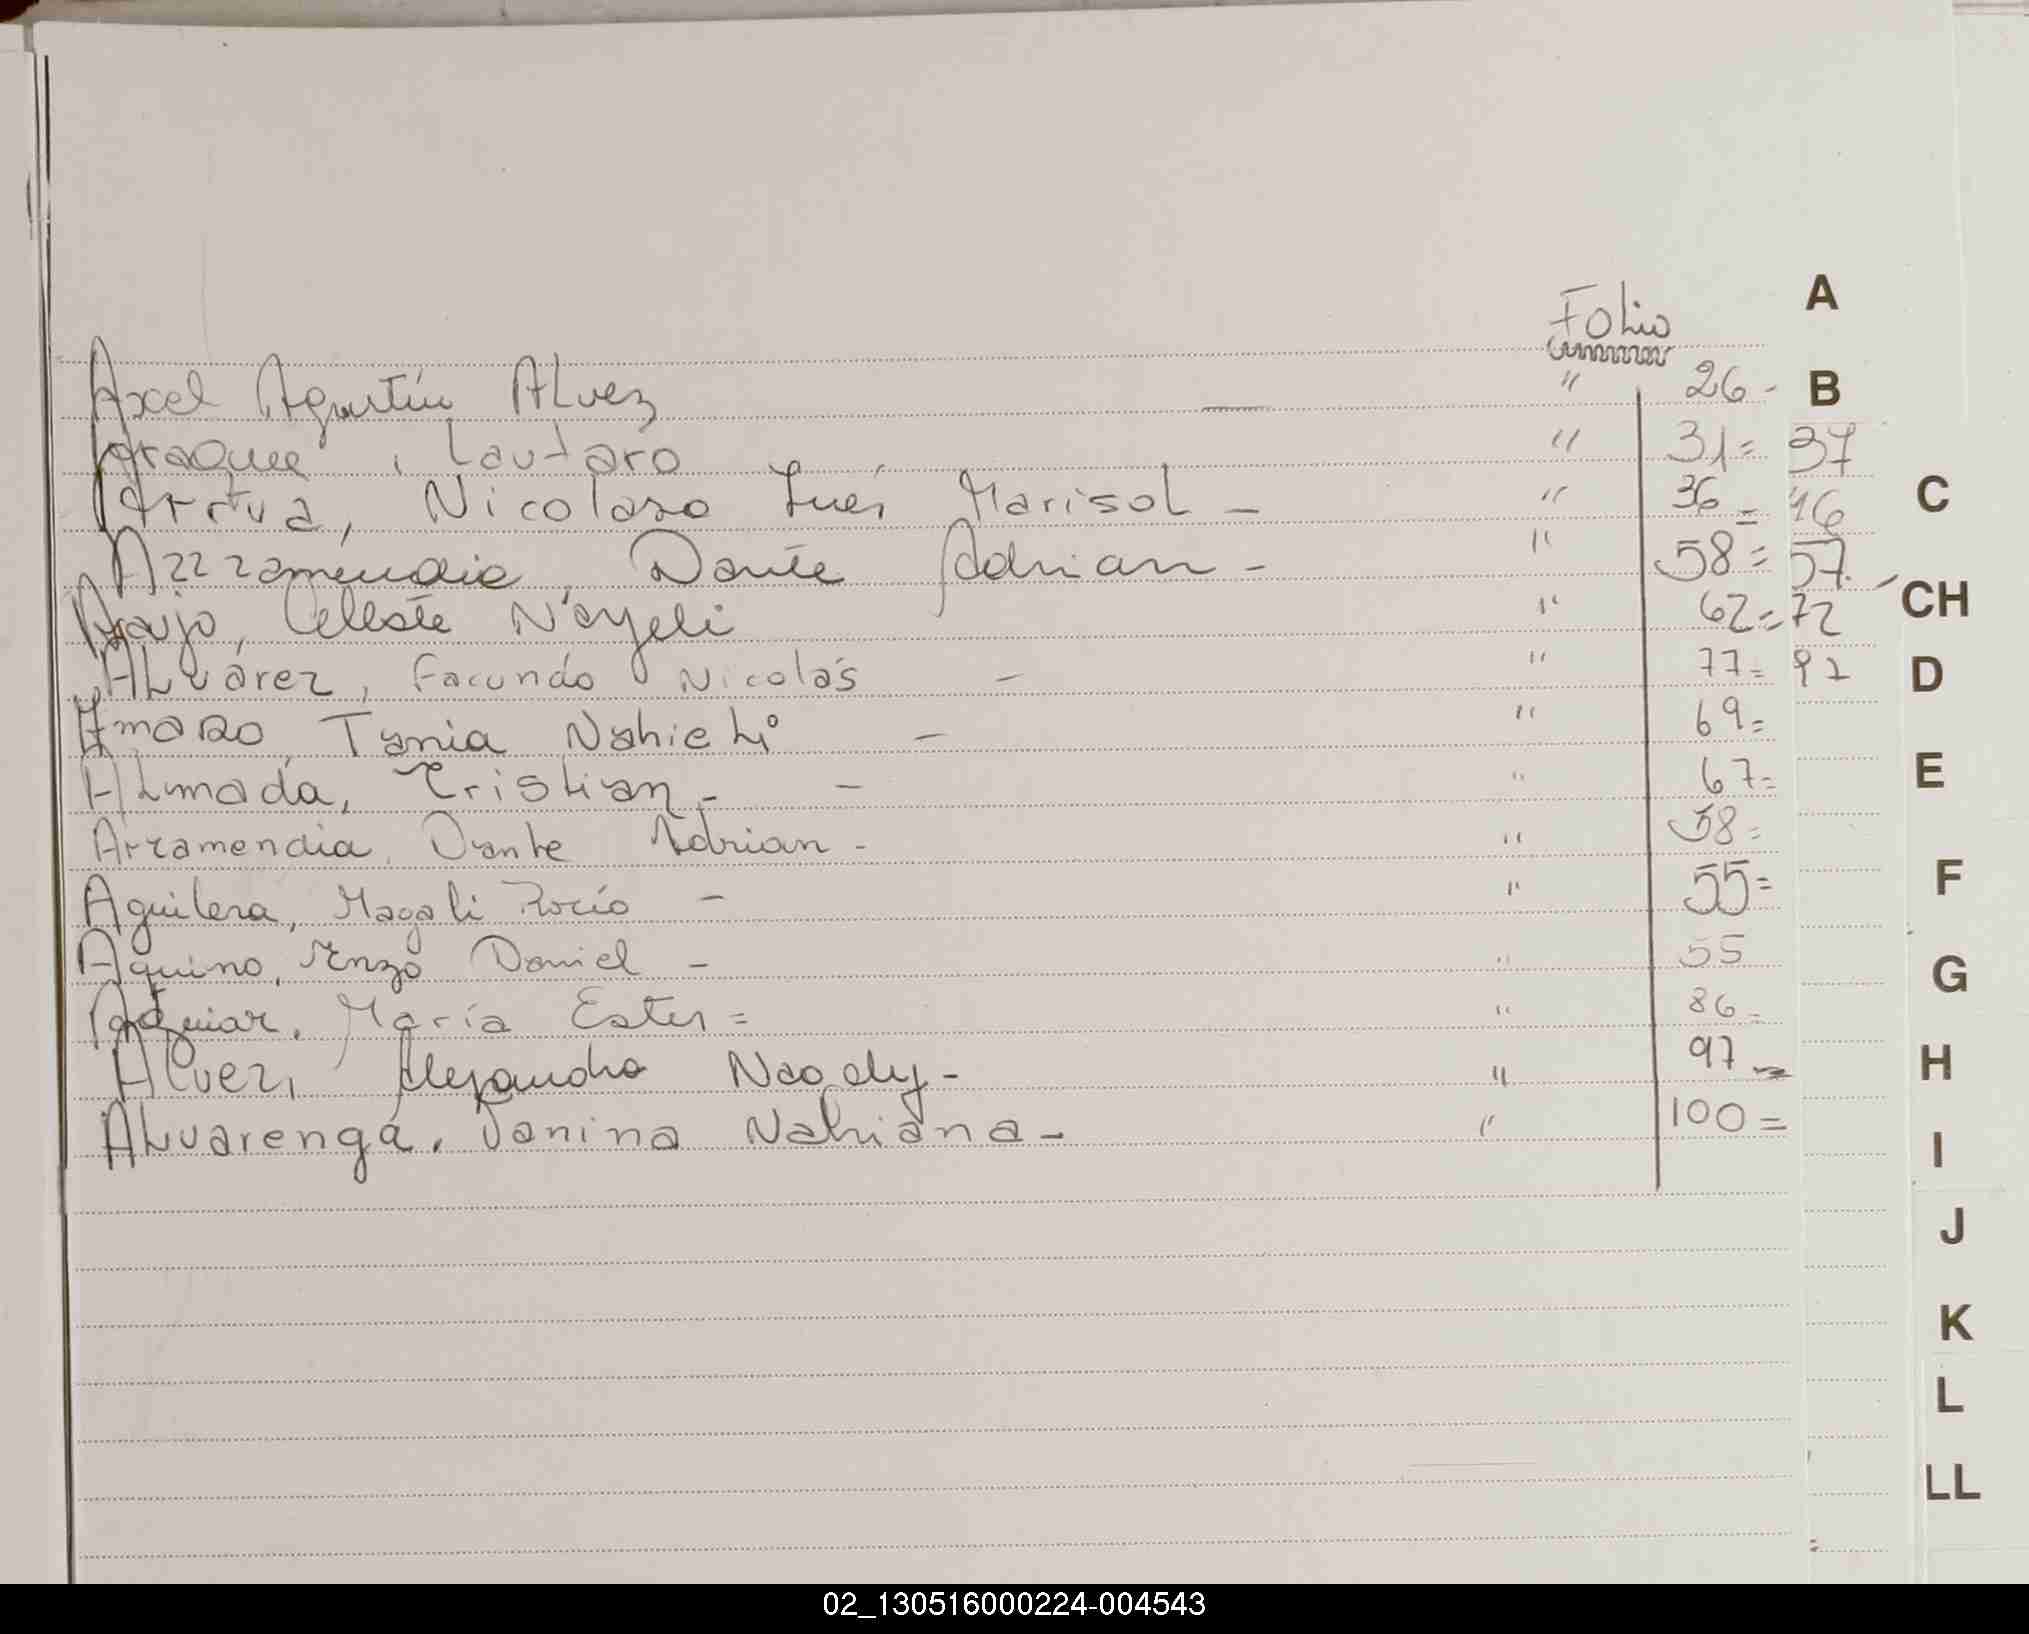 Folio
A
Axel Agustín Alvez — " 26 -
B
Araque, Lautaro " 31 = 37
Nicolaso Inés Marisol - " 36 = 46
C
Arramendia, Dante Adrian - " 58 = 57
Araujo, Celeste Nayeli " 62 = 72
CH
Alvárez, Facundo Nicolás - " 77 = 92
D
Amaro Tania Nahieli - " 69 =
Almada, Cristian - - " 67 =
E
Arramendia, Dante Adrian - " 58 =
Aguilera, Magali Rocío - " 55 =
F
Aquino, Enzo Daniel - " 55
G
Aguiar, María Ester = " 86 -
Alvez, Alejandra - " 97 -
H
Alvarenga, Janina Nahiana - " 100 =
I
J
K
L
LL
02_130516000224-004543